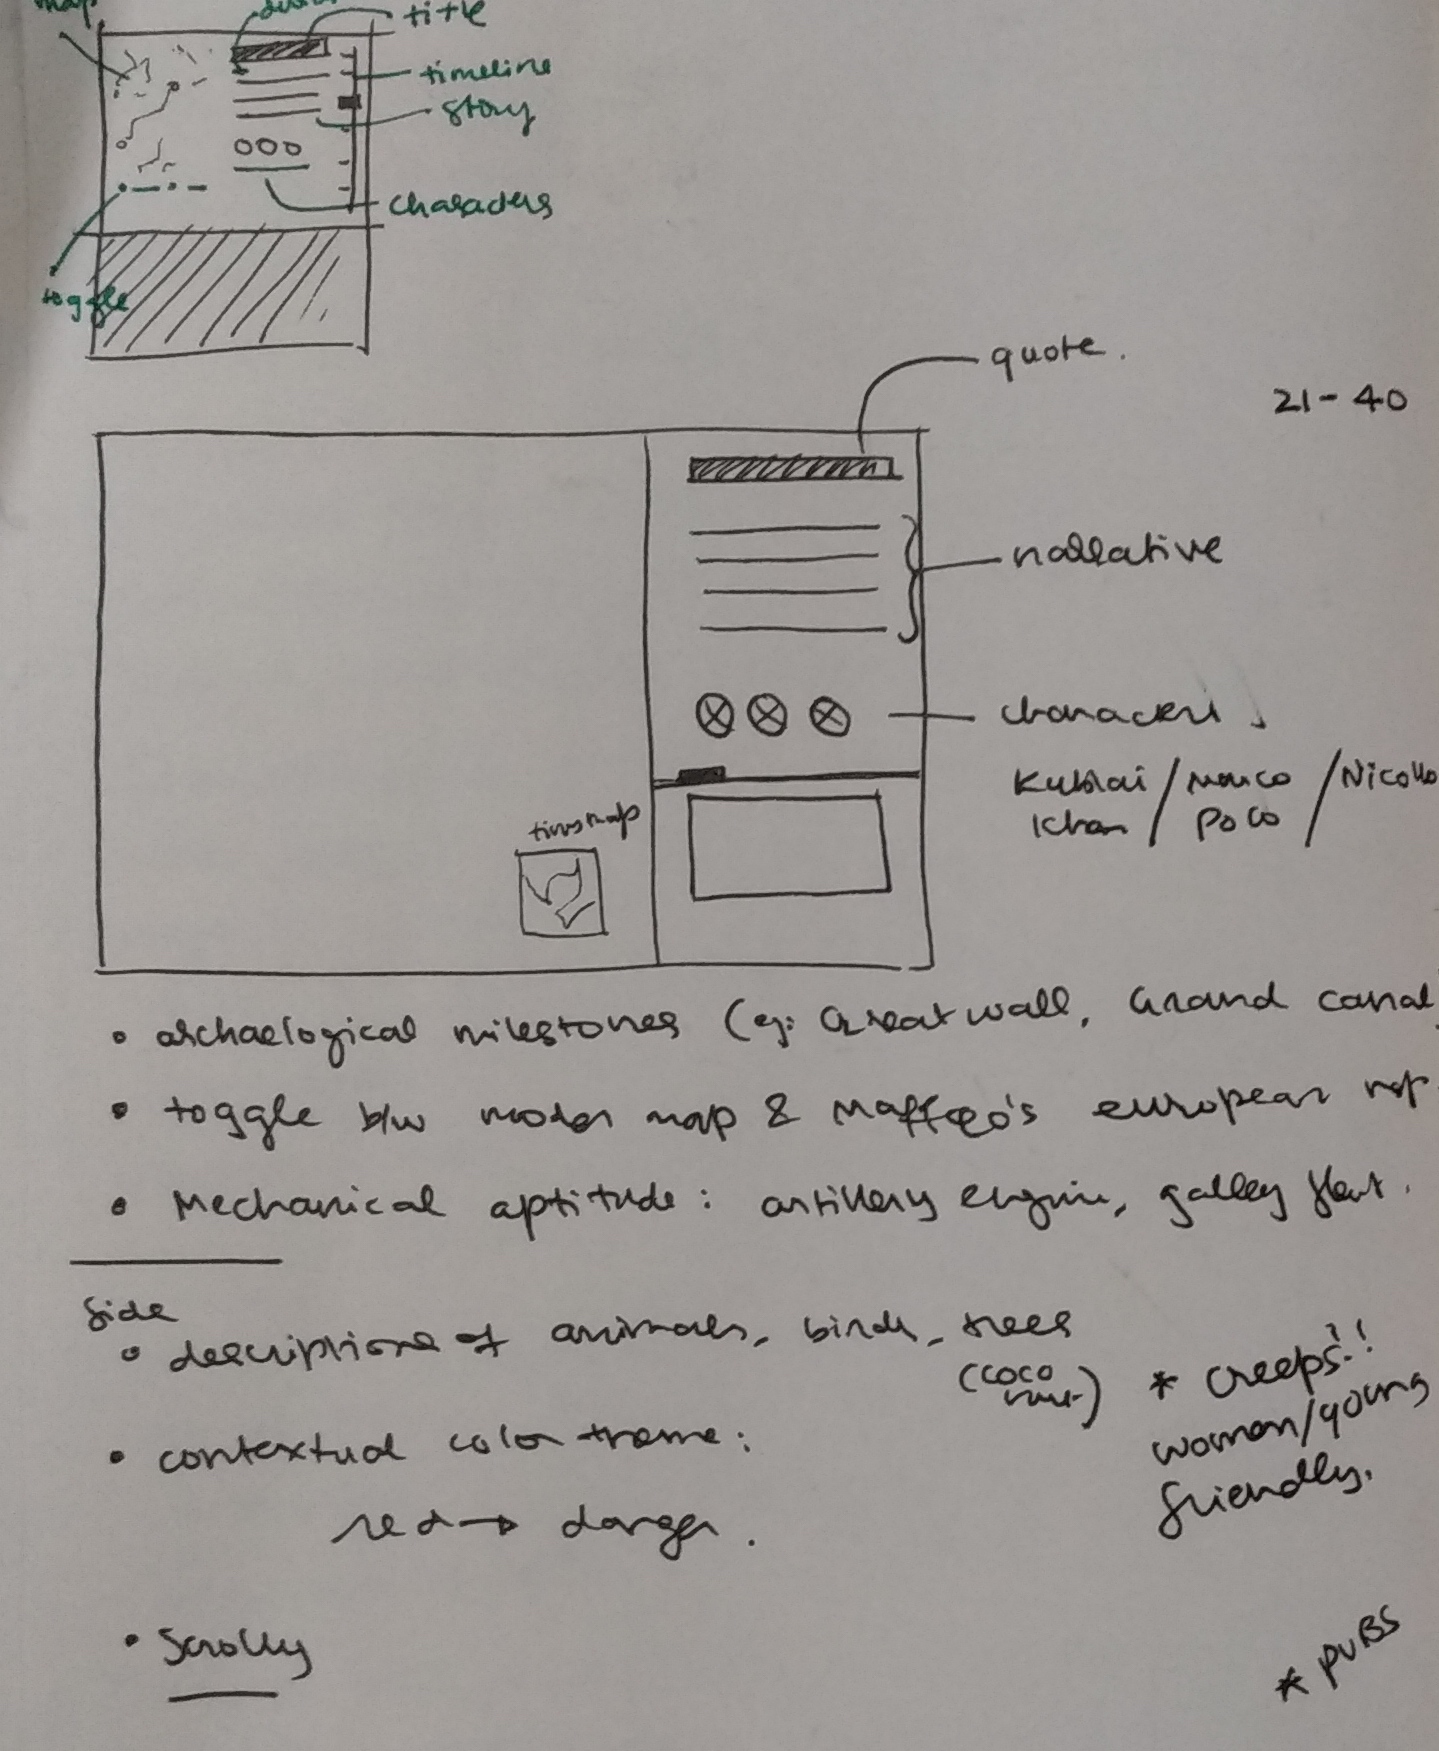 map
title
timeline
story
characters
toggle
quote.
21-40
narrative
characters
Kublai / Marco / Nicollo
Khan / Polo
• archaelogical milestones (eg: Great wall, Grand canal
• toggle b/w modern map & Maffeo's european
• Mechanical aptitude: artillery engine, galley
Side
• descriptions of animals, birds, trees
(coco
nut)
* creeps?!
woman/young
friendly.
• contextual color theme:
red → danger.
• Scrolly
* PUBS